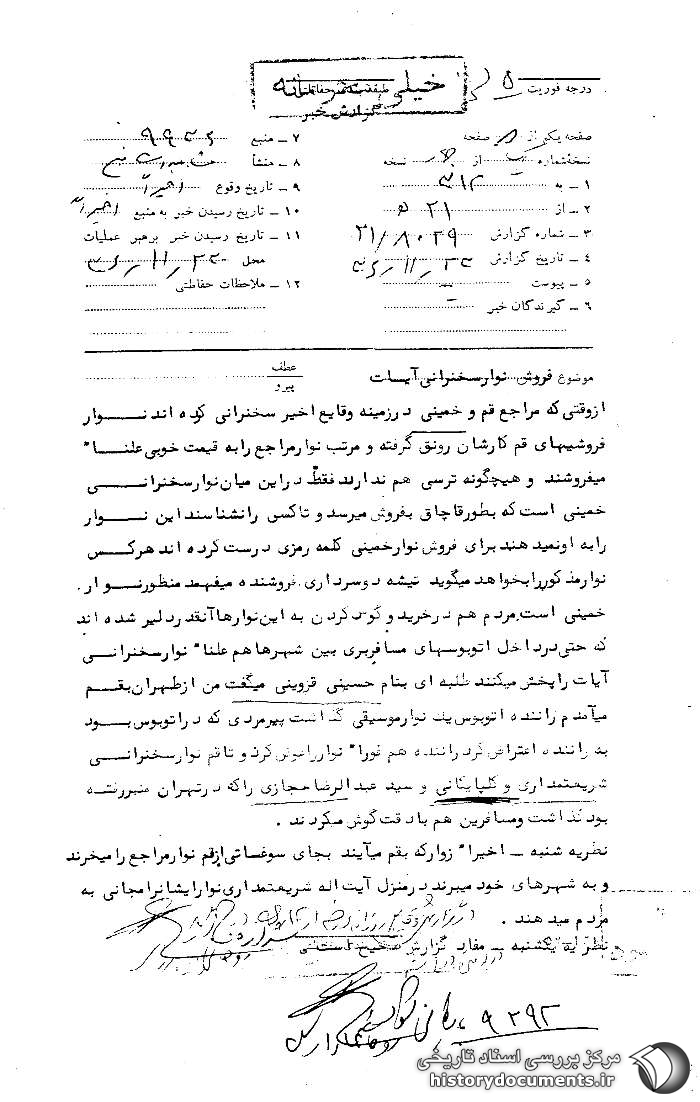 درجه فوریت
خیلی محرمانه
طبقه حفاظتی
گزارش خبر
صفحه یکم از صفحه
نسخه شماره از نسخه
۱ ـ به ۳۱۲
۲ ـ از ۲۱ ه
۳ ـ شماره گزارش ۲۱/۸۰۲۹
۴ ـ تاریخ گزارش
۵ ـ پیوست
۶ ـ گیرندگان خبر
۷ ـ منبع
۸ ـ منشأ
۹ ـ تاریخ وقوع اخیراً
۱۰ ـ تاریخ رسیدن خبر به منبع اخیراً
۱۱ ـ تاریخ رسیدن خبر برهبر عملیات
محل
۱۲ ـ ملاحظات حفاظتی
موضوع فروش نوارسخنرانی آیات
عطف
پیرو
ازوقتی که مراجع قم و خمینی درزمینه وقایع اخیر سخنرانی کرده اند نوار
فروشیهای قم کارشان رونق گرفته و مرتب نوارمراجع رابه قیمت خوبی علنا"
میفروشند و هیچگونه ترسی هم ندارند فقط دراین میان نوارسخنرانی
خمینی است که بطورقاچاق بفروش میرسد و تاکسی رانشناسند این نوار
رابه اونمیدهند برای فروش نوارخمینی کلمه رمزی درست کرده اند هرکس
نوارمذکوررابخواهد میگوید تیشه دوسرداری فروشنده میفهمد منظورنوار
خمینی است. مردم هم درخرید و گوش کردن به این نوارها آنقدردلیر شده اند
که حتی درداخل اتوبوسهای مسافربری بین شهرها هم علنا" نوارسخنرانی
آیات راپخش میکنند طلبه ای بنام حسینی قزوینی میگفت من ازطهران بقم
میآمدم راننده اتوبوس یک نوارموسیقی گذاشت پیرمردی که دراتوبوس بود
به راننده اعتراض کرد راننده هم فورا" نوارراعوض کرد و تاقم نوارسخنرانی
شریعتمداری و گلپایگانی و سید عبدالرضا حجازی راکه درتهران منبررفته
بود گذاشت ومسافرین هم بادقت گوش میکردند .
نظریه شنبه ـ اخیرا" زوارکه بقم میآیند بجای سوغاتی ازقم نوارمراجع رامیخرند
و به شهرهای خود میبرند درمنزل آیت اله شریعتمداری نوارایشانرا مجانی به
مردم میدهند .
نظریه یکشنبه ـ مفاد گزارش صحیح است
۹۲۹۲
مرکز بررسی اسناد تاریخی
historydocuments.ir